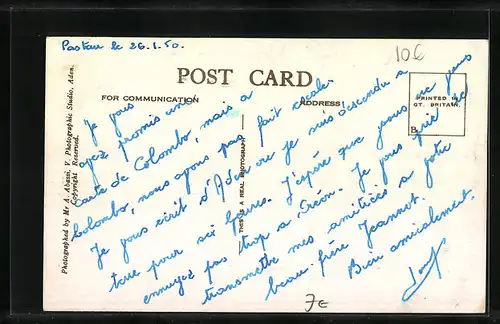 Pastau le 26.1.50.
10€
POST CARD
FOR COMMUNICATION
ADDRESS
PRINTED IN
GT. BRITAIN.
B
Photographed by Mr A. Abassi, V. Photographic Studio, Aden.
Copyright Reserved.
THIS IS A REAL PHOTOGRAPH
Je vous
ayez promis une
carte de Colombo, mais à
Colombo, nous avons pas fait escale.
Je vous écrit d'Aden où je suis descendu à
terre pour six heures. J'espère que vous vous
ennuyez pas trop à Créon. Je vous prie de
transmettre mes amitiées à votre
beau-frère Jeannot.
Bien amicalement.
7€